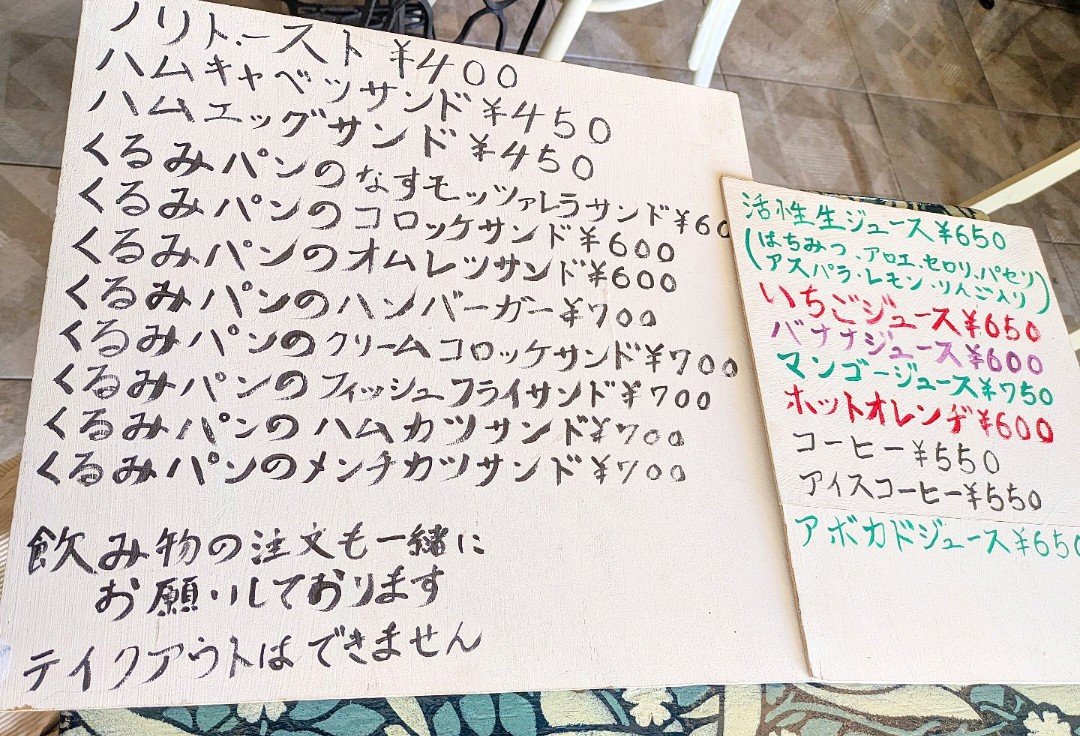 ノリトースト ¥400
ハムキャベツサンド ¥450
ハムエッグサンド ¥450
くるみパンのなすモッツァレラサンド¥60
くるみパンのコロッケサンド¥600
くるみパンのオムレツサンド¥600
くるみパンのハンバーガー¥700
くるみパンのクリームコロッケサンド¥700
くるみパンのフィッシュフライサンド¥700
くるみパンのハムカツサンド¥700
くるみパンのメンチカツサンド¥700
飲み物の注文も一緒に
お願いしております
テイクアウトはできません
活性生ジュース¥650
(はちみつ、アロエ、セロリ、パセリ
アスパラ・レモン・りんご入り)
いちごジュース¥650
バナナジュース¥600
マンゴージュース¥750
ホットオレンヂ¥600
コーヒー¥550
アイスコーヒー¥550
アボカドジュース¥650